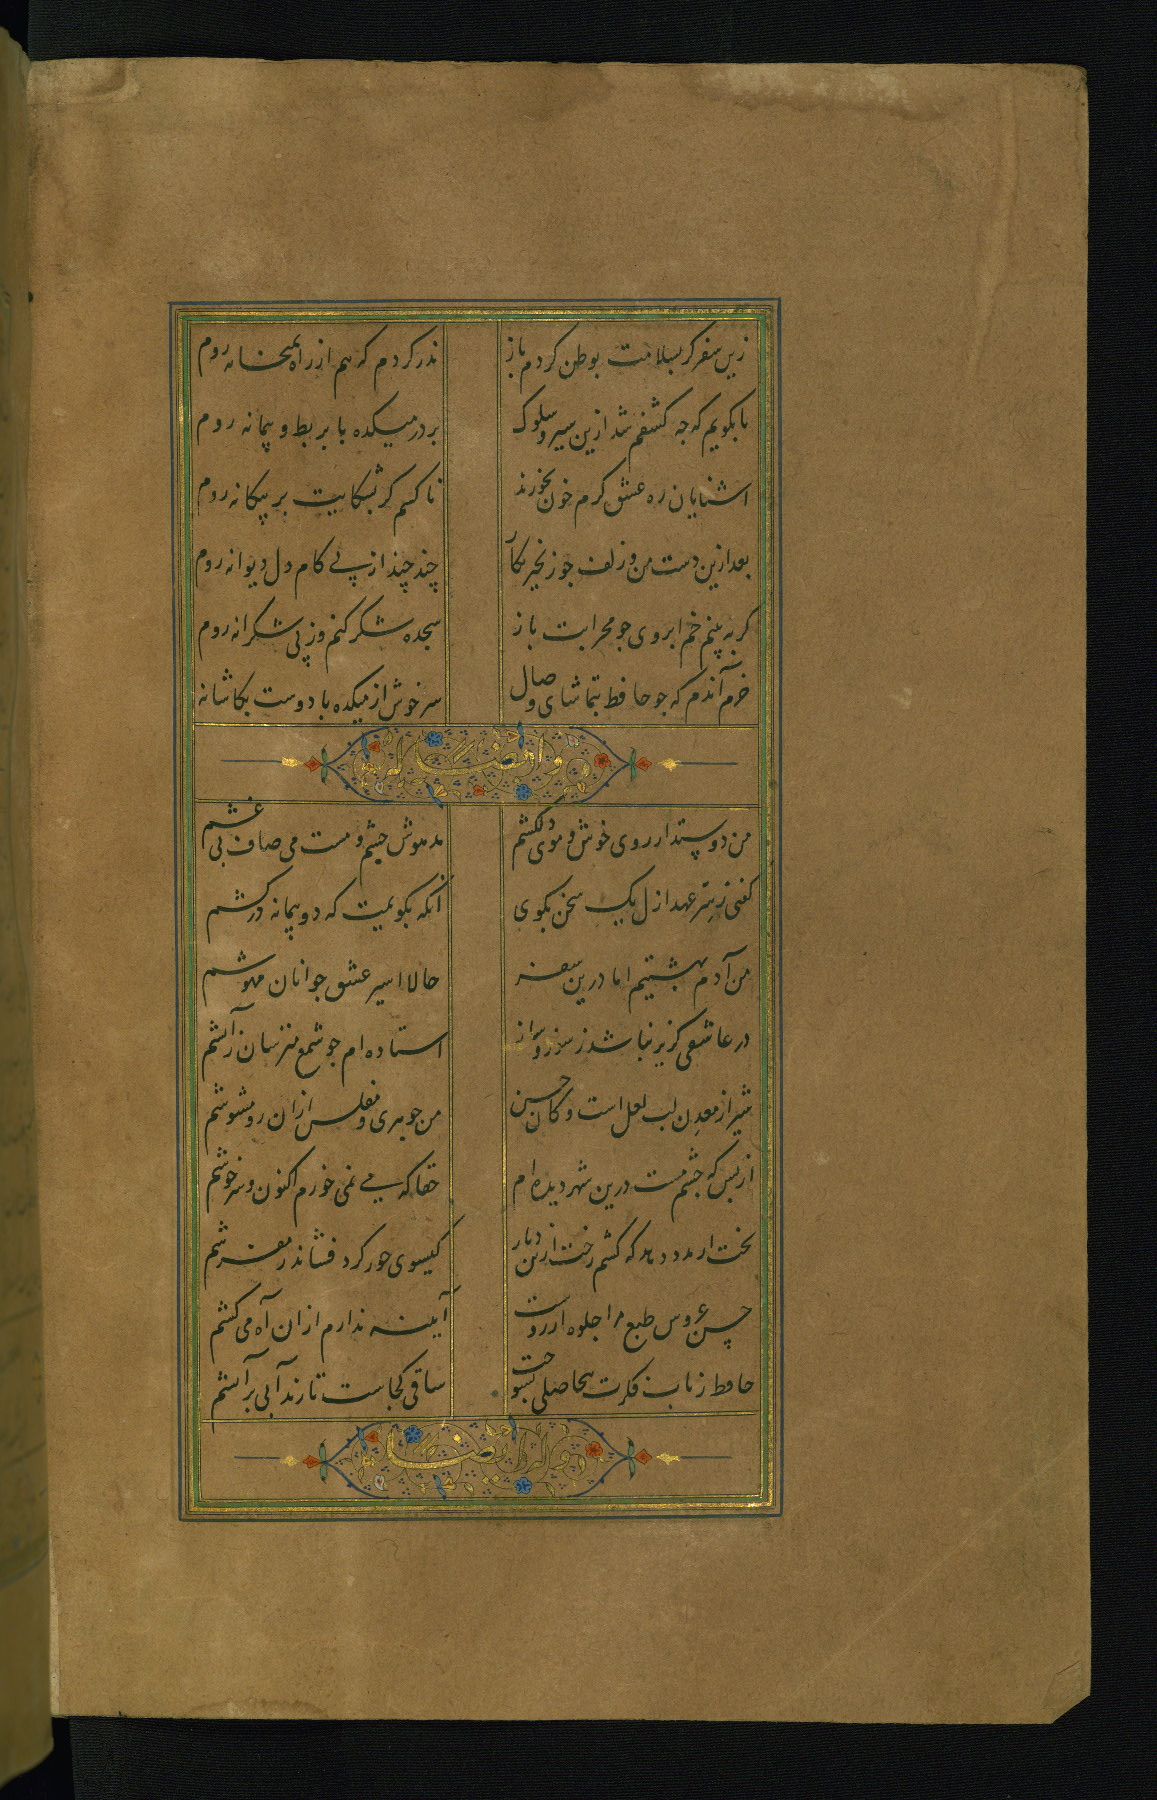 زین سفر کر بسلامت بوطن کردم باز
نذر کردم که هم از راه بمیخانه روم
تا بکویم که چه کشفم شد ازین سیر و سلوک
بر در میکده با بربط و پیمانه روم
اشنایان ره عشق کرم خون بخورند
ناکسم کر بشکایت بر بیکانه روم
بعد ازین دست من و زلف جو زنجیر نکار
چند چند از پی کام دل دیوانه روم
کر به بینم خم ابروی جو محرابت باز
سجده شکر کنم وز پی شکرانه روم
خرم آندم که جو حافظ بتماشای وصال
سرخوش از میکده با دوست بکاشانه
وله ایضا
من دوستدار روی خوش و موی دلکشم
مدهوش چشم و مست می صاف بی غشم
کفتی ز سر عهد ازل یک سخن بکوی
آنکه بکویمت که دو پیمانه درکشم
من آدم بهشتیم اما درین سفر
حالا اسیر عشق جوانان مهوشم
در عاشقی کزیر نباشد ز سوز و ساز
استاده ام جو شمع مترسان ز آتشم
شیراز معدن لب لعل است و کان حسن
من جوهری و مفلس ازان رو مشوشم
از بس که چشم مست درین شهر دیده ام
حقا که می نمی خورم اکنون و سرخوشم
بخت ار مدد دهد که کشم رخت ازین دیار
کیسوی حور کرد فشاند ز مفرشم
حسن عروس طبع مرا جلوه ارزوست
آیینه ندارم ازان آه می کشم
حافظ ز تاب فکرت بیحاصلی بسوخت
ساقی کجاست تا زند آبی بر آتشم
وله ایضا